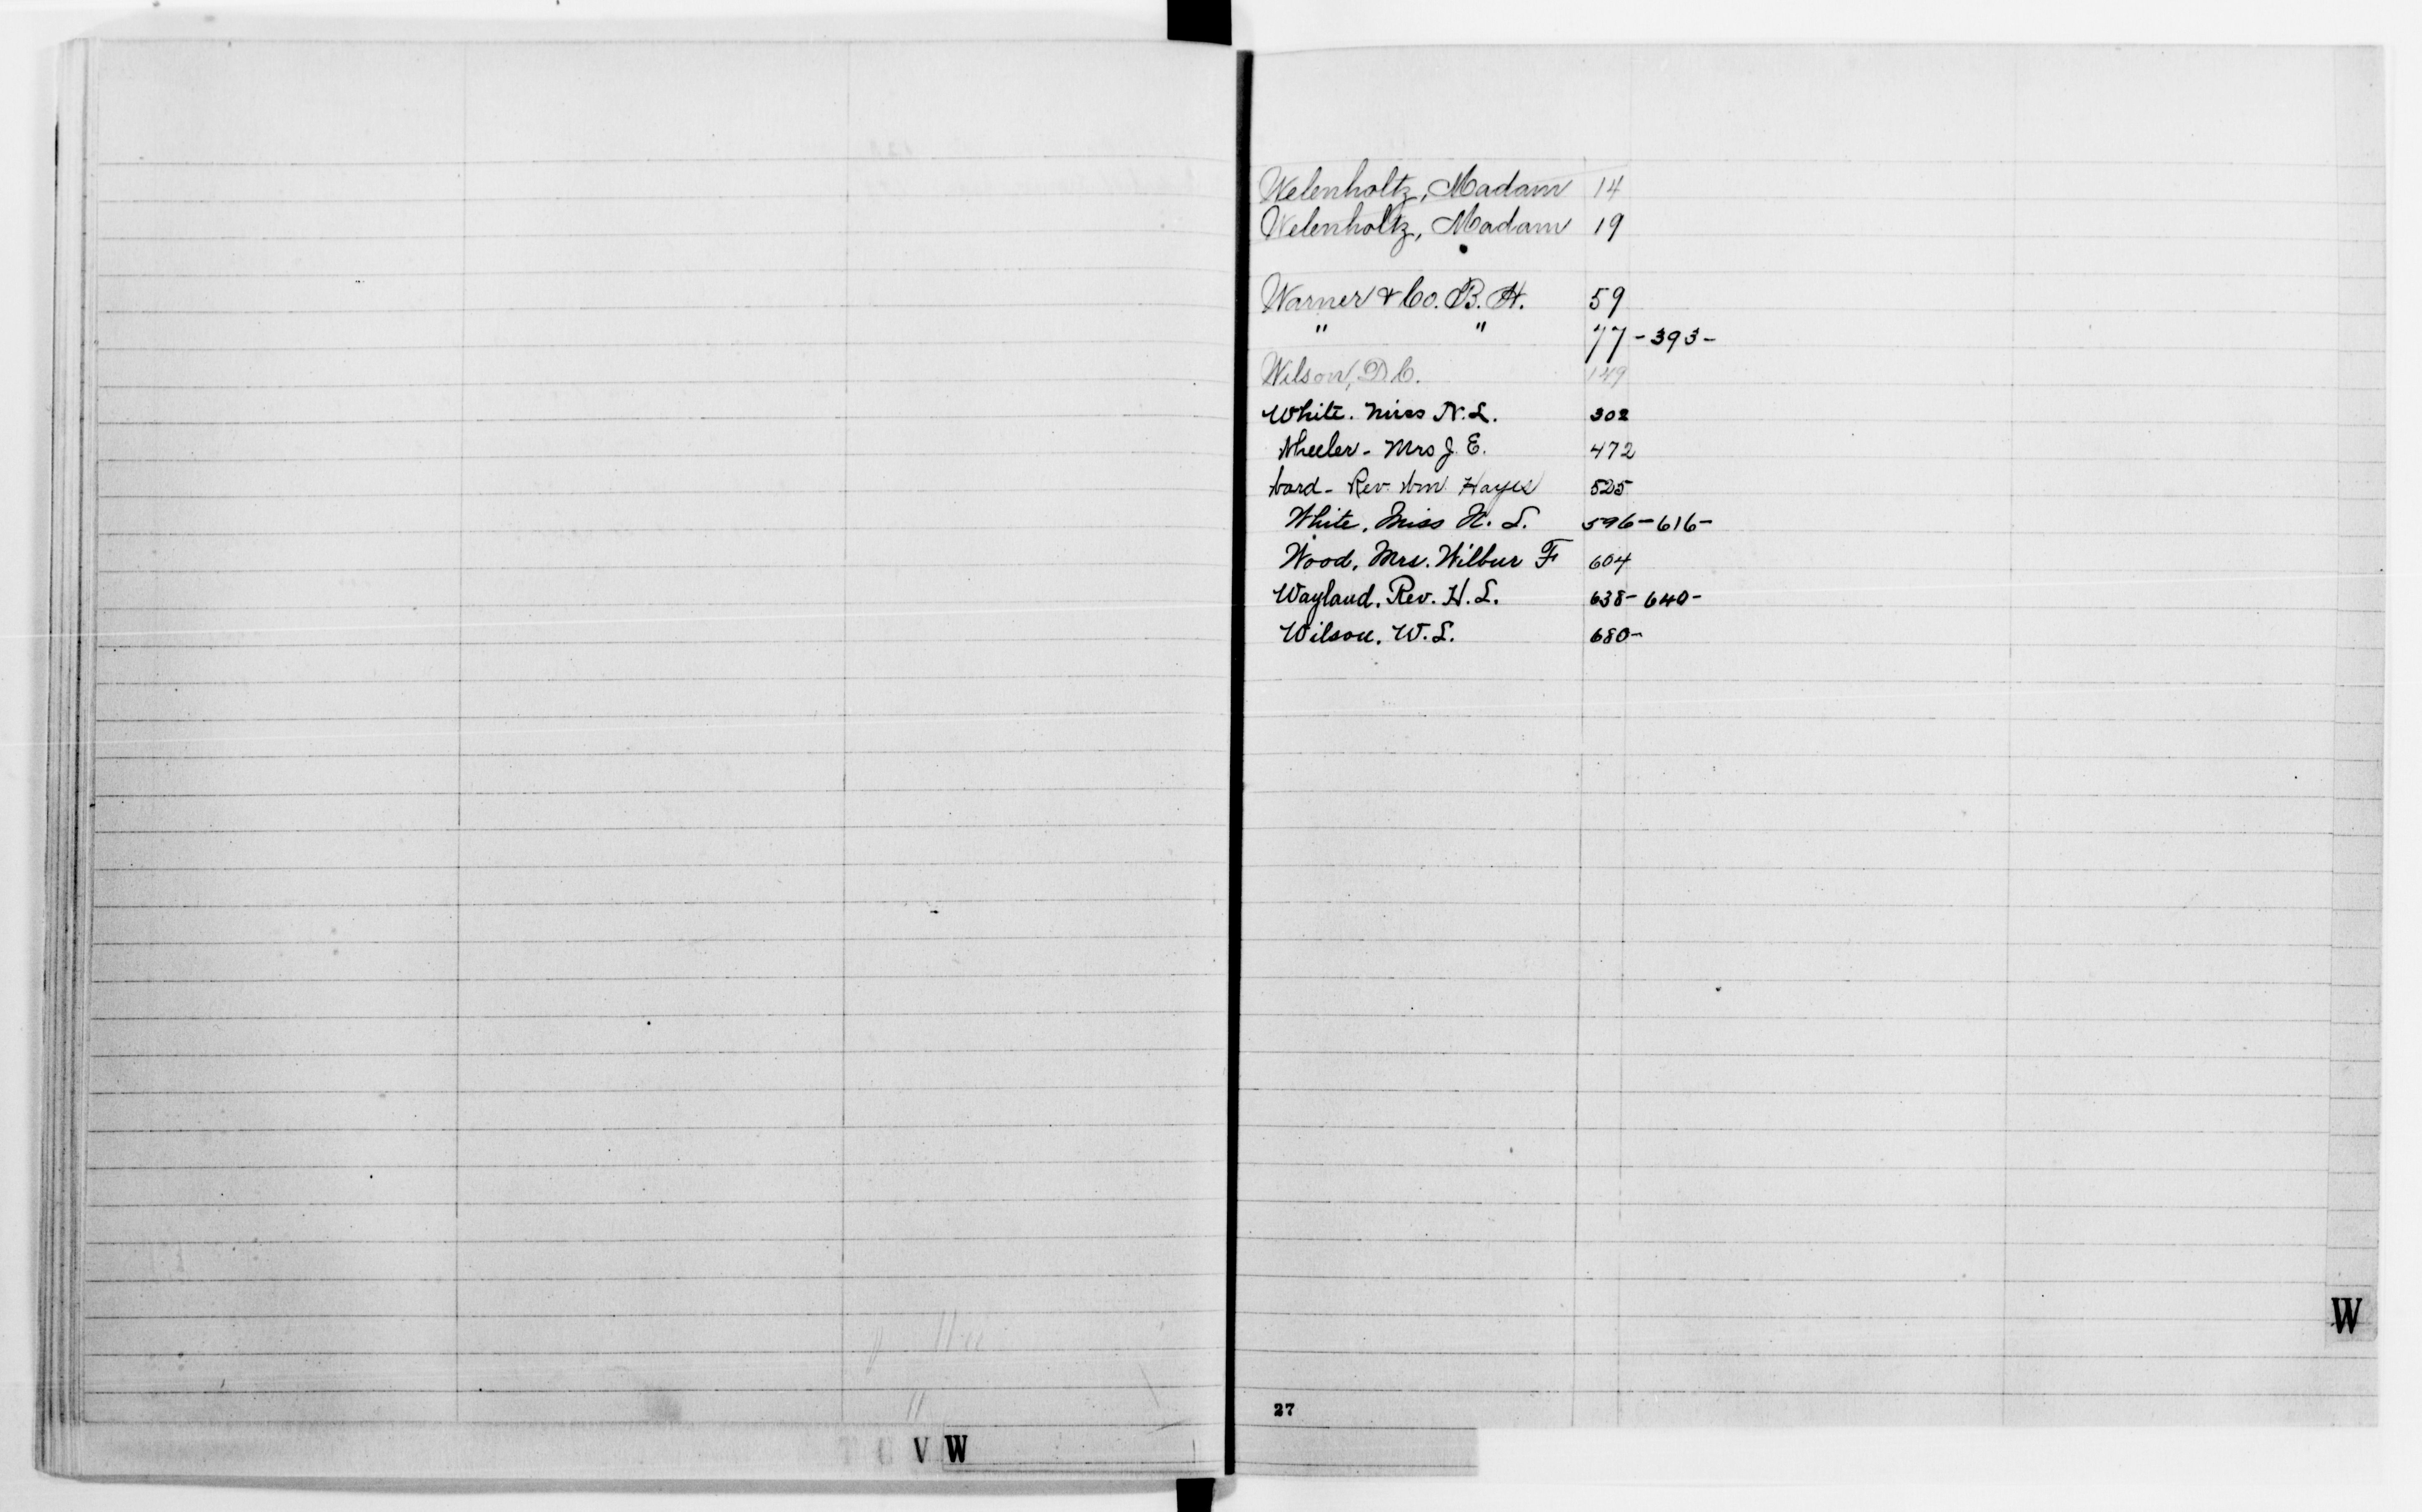 Welenholtz, Madam 14
Welenholtz, Madam 19
Warner & Co. B. H. 59
" " 77-393-
Wilson, D.C. 149
White. Miss N. L. 302
Wheeler- Mrs J. E. 472
Ward- Rev. Wm. Hayes 525
White, Miss N. L. 596-616-
Wood, Mrs. Wilbur F 604
Wayland. Rev. H. L. 638-640-
Wilson. W. L. 680-
W
27
V W